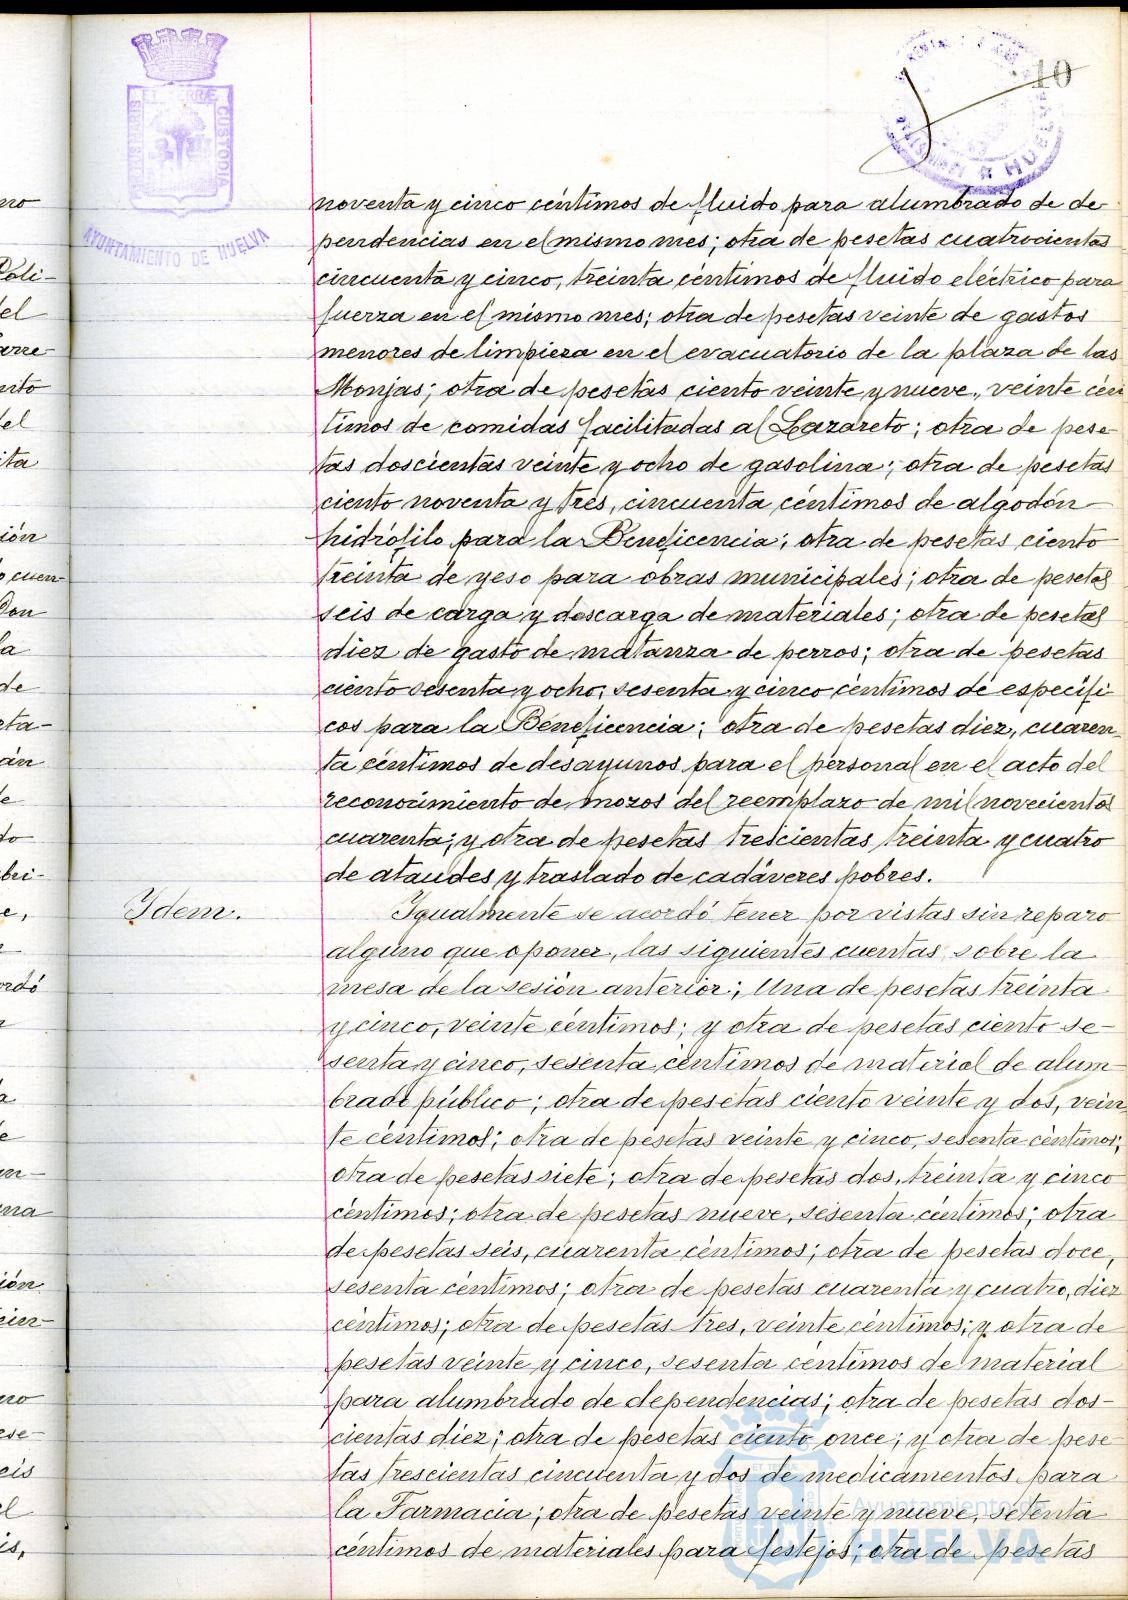 10
PORTUS MARIS
ET TERRÆ
CUSTODIA
AYUNTAMIENTO DE HUELVA
HUELVA
noventa y cinco céntimos de fluido para alumbrado de de-
pendencias en el mismo mes; otra de pesetas cuatrocientas
cincuenta y cinco, treinta céntimos de fluido eléctrico para
fuerza en el mismo mes; otra de pesetas veinte de gastos
menores de limpieza en el evacuatorio de la plaza de las
Monjas; otra de pesetas ciento veinte y nueve, veinte cén
timos de comidas facilitadas al Lazareto; otra de pese-
tas doscientas veinte y ocho de gasolina; otra de pesetas
ciento noventa y tres, cincuenta céntimos de algodón
hidrófilo para la Beneficencia; otra de pesetas ciento
treinta de yeso para obras municipales; otra de pesetas
seis de carga y descarga de materiales; otra de pesetas
diez de gasto de matanza de perros; otra de pesetas
ciento sesenta y ocho, sesenta y cinco céntimos de específi
cos para la Beneficencia; otra de pesetas diez, cuaren-
ta céntimos de desayunos para el personal en el acto del
reconocimiento de mozos del reemplazo de mil novecientos
cuarenta; y otra de pesetas trescientas treinta y cuatro
de ataudes y traslado de cadáveres pobres.
Ydem.
Igualmente se acordó tener por vistas sin reparo
alguno que oponer, las siguientes cuentas sobre la
mesa de la sesión anterior; Una de pesetas treinta
y cinco, veinte céntimos; y otra de pesetas ciento se-
senta y cinco, sesenta céntimos de material de alum-
brado público; otra de pesetas ciento veinte y dos, vein
te céntimos; otra de pesetas veinte y cinco, sesenta céntimos;
otra de pesetas siete; otra de pesetas dos, treinta y cinco
céntimos; otra de pesetas nueve, sesenta céntimos; otra
de pesetas seis, cuarenta céntimos; otra de pesetas doce,
sesenta céntimos; otra de pesetas cuarenta y cuatro, diez
céntimos; otra de pesetas tres, veinte céntimos; y otra de
pesetas veinte y cinco, sesenta céntimos de material
para alumbrado de dependencias; otra de pesetas dos-
cientas diez; otra de pesetas ciento once; y otra de pese-
tas trescientas cincuenta y dos de medicamentos para
la Farmacia; otra de pesetas veinte y nueve, setenta
céntimos de materiales para festejos; otra de pesetas
Ayuntamiento de
HUELVA